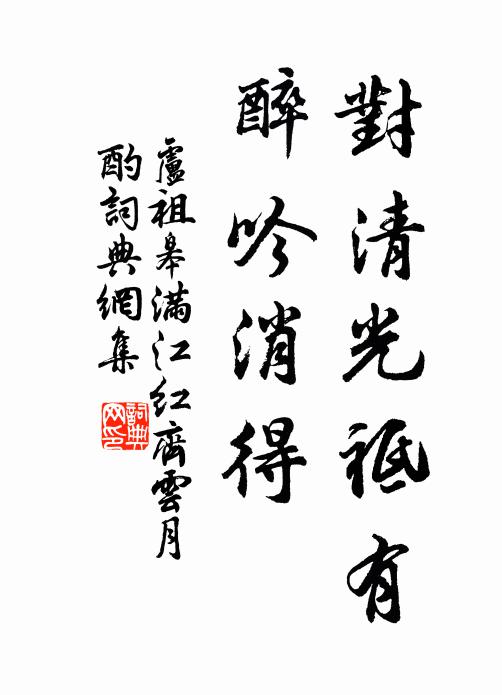 對清光祗有
醉吟消得
盧祖皋滿江紅齊雲月
酌詞典網集
詞典網印